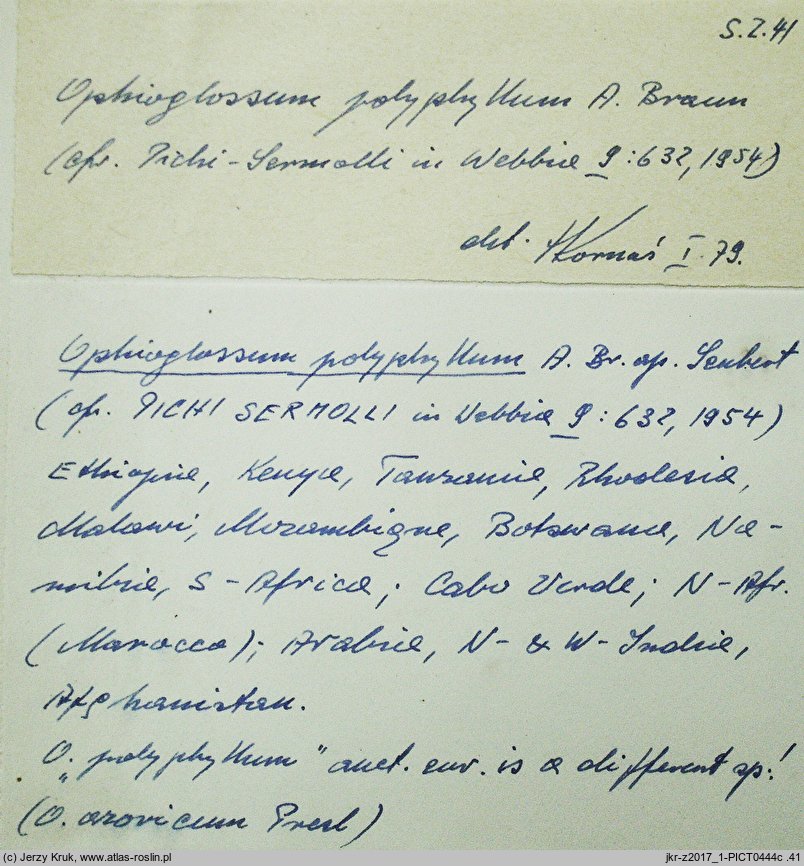 S.Z.41
Ophioglossum polyphyllum A. Braun
(cfr. Pichi-Sermolli in Webbia 9:632, 1954)
det. JKornaś I.79.
Ophioglossum polyphyllum A. Br. ap. Seubert
(cfr. PICHI SERMOLLI in Webbia 9:632, 1954)
Ethiopia, Kenya, Tanzania, Rhodesia,
Malawi, Mozambique, Botswana, Na-
mibia, S-Africa; Cabo Verde; N-Afr.
(Marocco); Arabia, N- & W-India,
Afghanistan.
O. „polyphyllum" auct. eur. is a different sp.!
(O. azoricum Presl)
(c) Jerzy Kruk, www.atlas-roslin.pl
jkr-z2017_1-PICT0444c .41